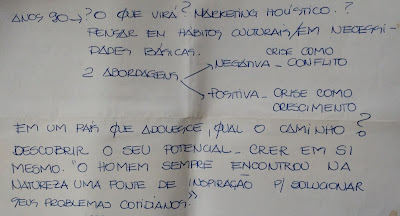 ANOS 90 → ? O QUE VIRÁ? MARKETING HOLÍSTICO.?
PENSAR EM HÁBITOS CULTURAIS/EM NECESSI-
DADES BÁSICAS.
2 ABORDAGENS
CRISE COMO
NEGATIVA - CONFLITO
POSITIVA - CRISE COMO
CRESCIMENTO
EM UM PAÍS QUE ADOLESCE, QUAL O CAMINHO?
DESCOBRIR O SEU POTENCIAL - CRER EM SI
MESMO. "O HOMEM SEMPRE ENCONTROU NA
NATUREZA UMA FONTE DE INSPIRAÇÃO P/ SOLUCIONAR
SEUS PROBLEMAS COTIDIANOS."